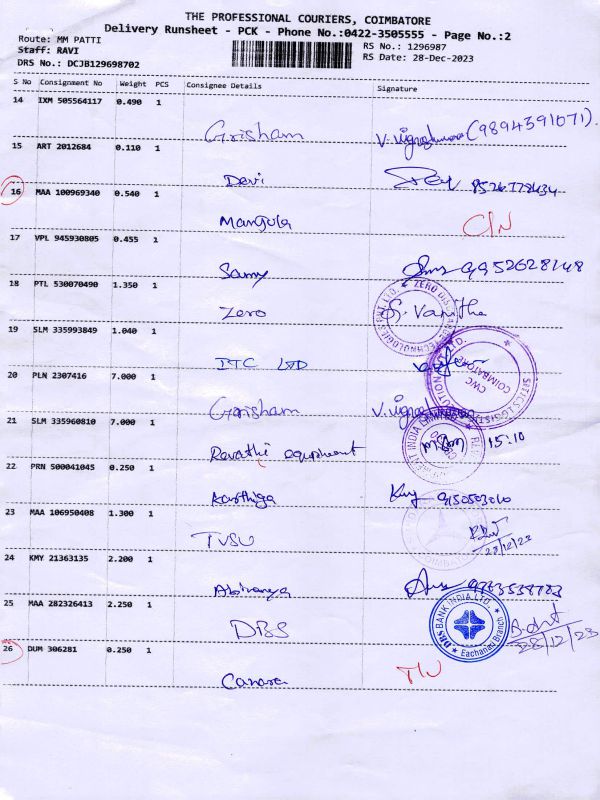 THE PROFESSIONAL COURIERS, COIMBATORE
Delivery Runsheet - PCK - Phone No.:0422-3505555 - Page No.:2
Route: MM PATTI
RS No.: 1296987
Staff: RAVI
RS Date: 28-Dec-2023
DRS No.: DCJB129698702
S No Consignment No Weight PCS Consignee Details Signature
14 IXM 505564117 0.490 1
Grisham V. (9894591071).
15 ART 2012684 0.110 1
Devi 8526778434
16 MAA 100969340 0.540 1
Mangula C/N
17 VPL 945930805 0.455 1
Samy 9952628148
18 PTL 530070490 1.350 1
Zero S. Vanitha
19 SLM 335993849 1.040 1
ITC LTD
20 PLN 2307416 7.000 1
Grisham
21 SLM 335960810 7.000 1
Revathi equipment 15:10
22 PRN 500041045 0.250 1
Karthiga
23 MAA 106950408 1.300 1
TVSU 28/12/23
24 KMY 21363135 2.200 1
Abinanya
25 MAA 282326413 2.250 1
DBS 28/12/23
DBS BANK INDIA LTD.
Eachanari Branch
26 DUM 306281 0.250 1
Canara
COIMBATORE
CWC